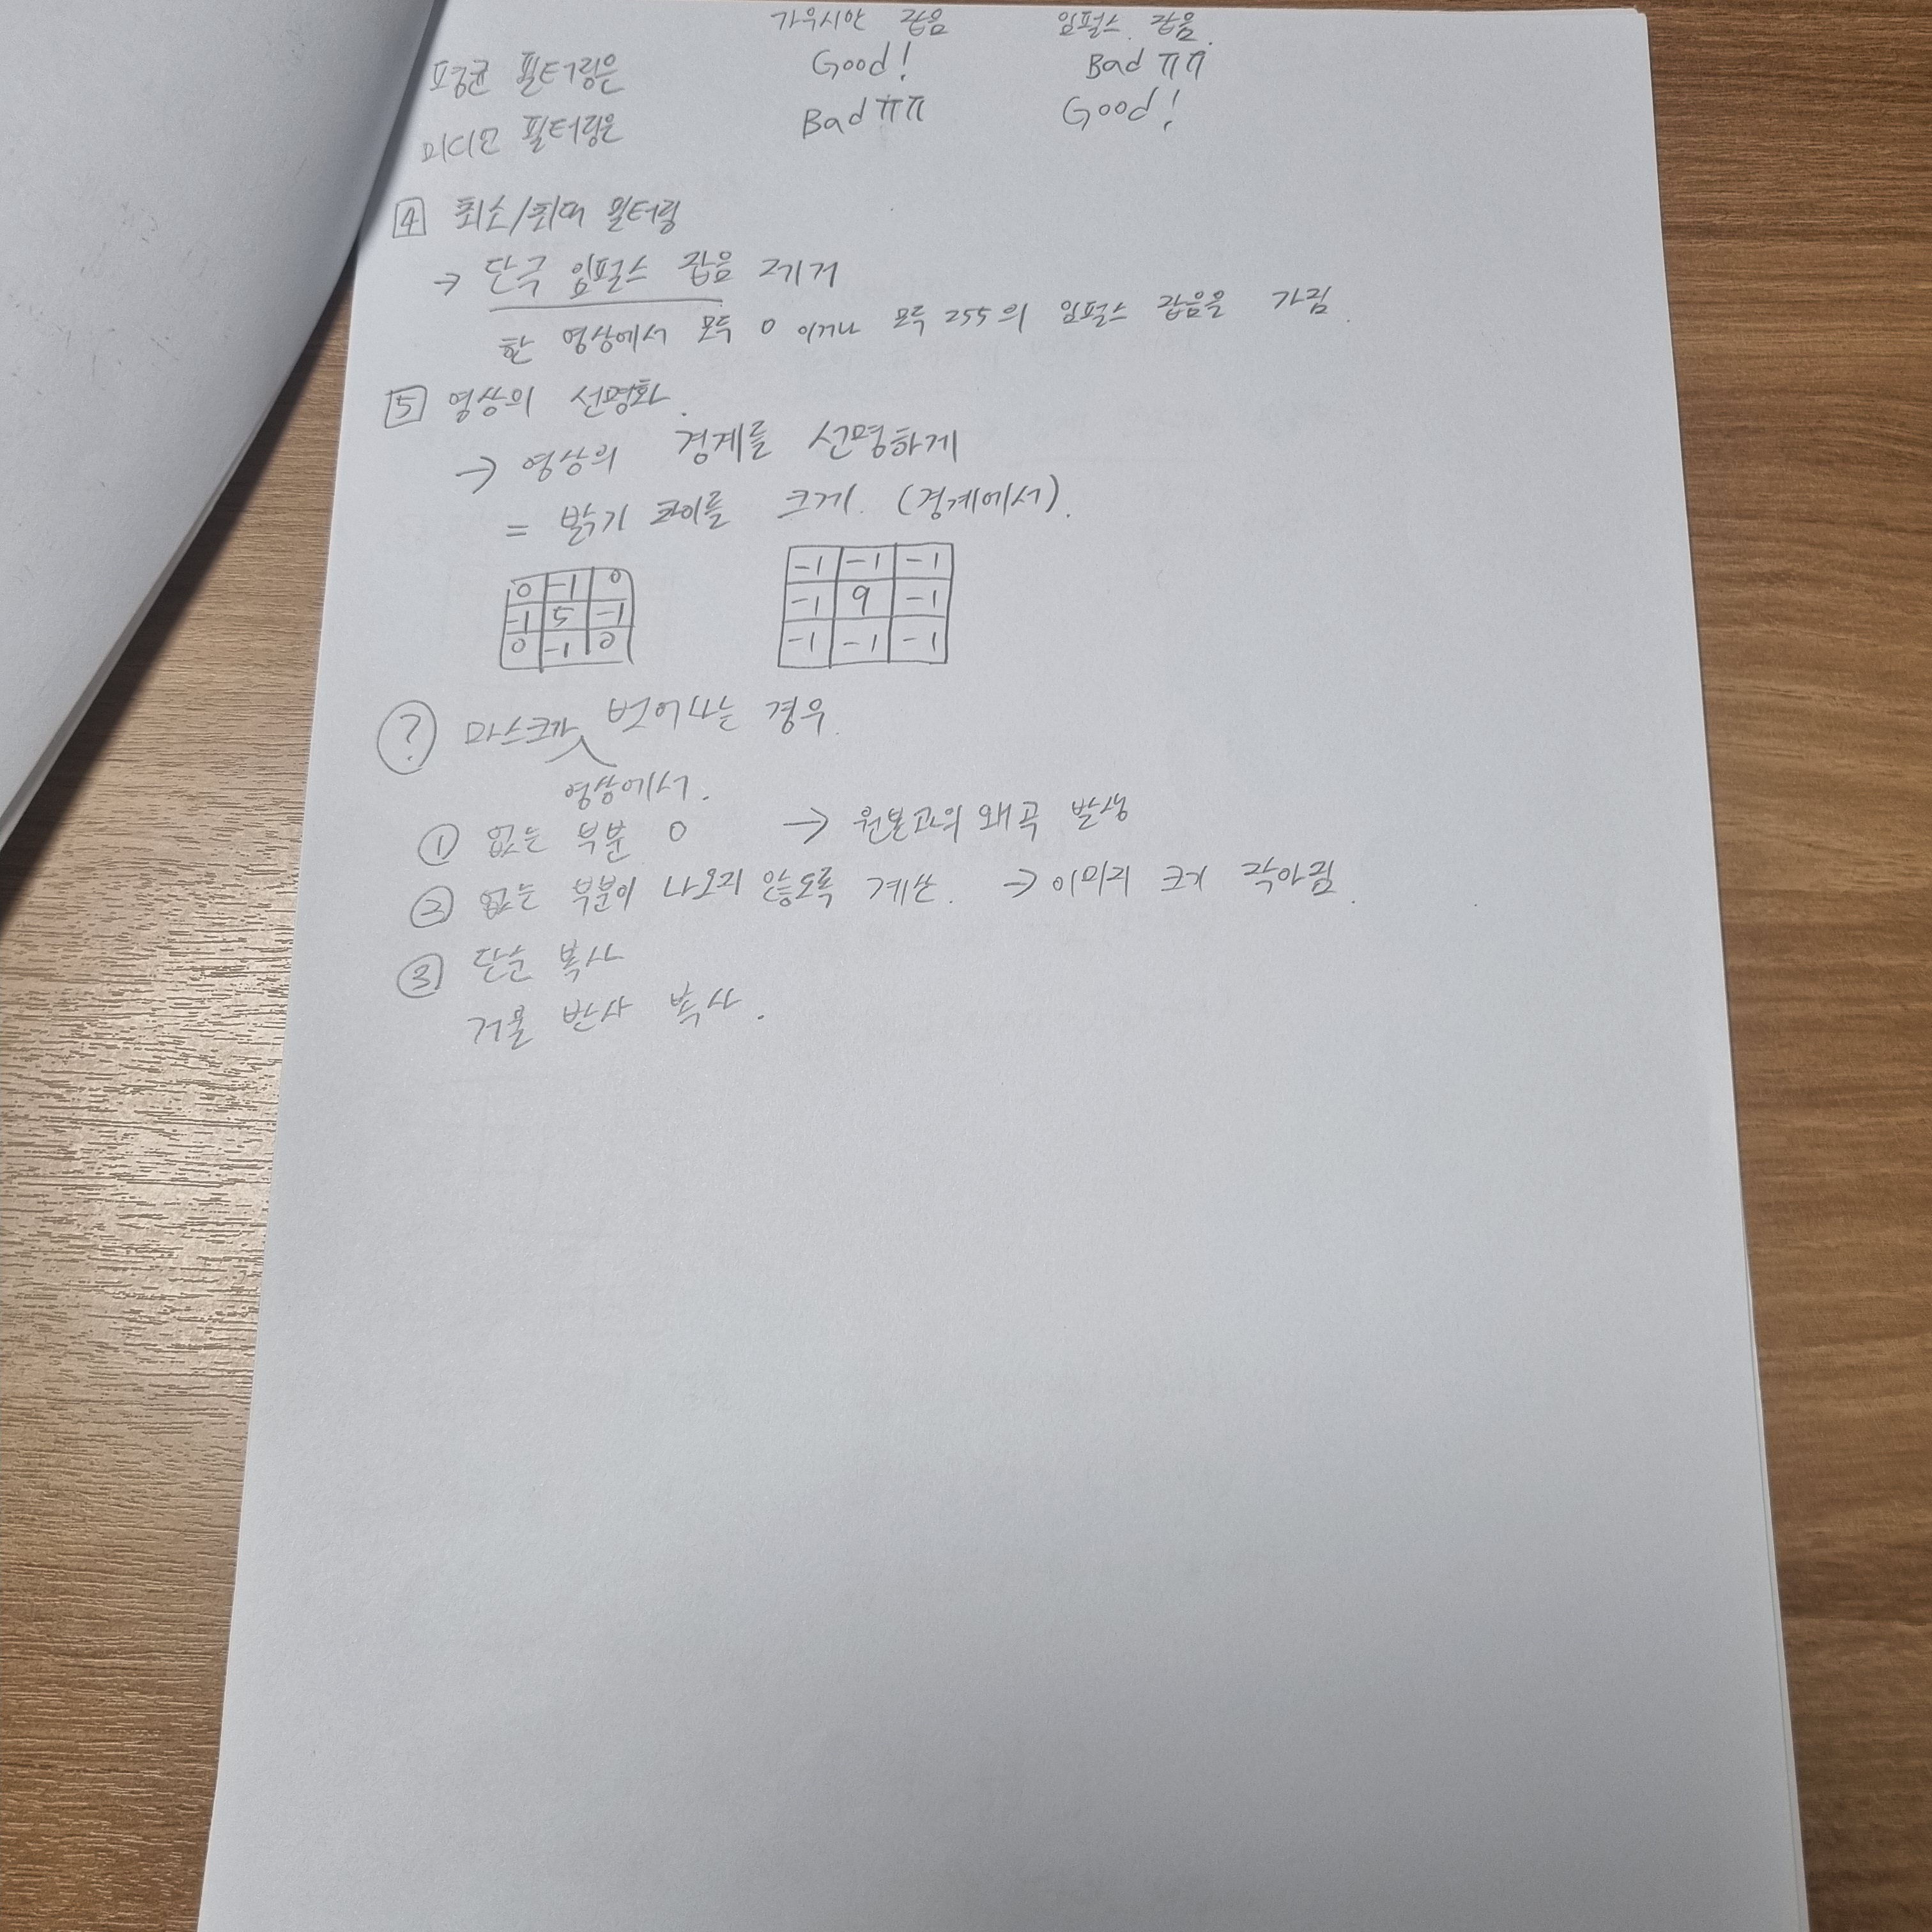 가우시안 잡음 임펄스 잡음.
평균 필터링은 Good! Bad ㅠㅠ
미디언 필터링은 Bad ㅠㅠ Good!
4 최소/최대 필터링
→ 단극 임펄스 잡음 제거
한 영상에서 모두 0 이거나 모두 255의 임펄스 잡음을 가짐.
5 영상의 선명화.
→ 영상의 경계를 선명하게
= 밝기 차이를 크게. (경계에서).
0 -1 0 -1 -1 -1
-1 5 -1 -1 9 -1
0 -1 0 -1 -1 -1
? 마스크가 벗어나는 경우.
영상에서.
① 없는 부분 0 → 원본과의 왜곡 발생
② 없는 부분이 나오지 않도록 계산. → 이미지 크기 작아짐.
③ 단순 복사
거울 반사 복사.